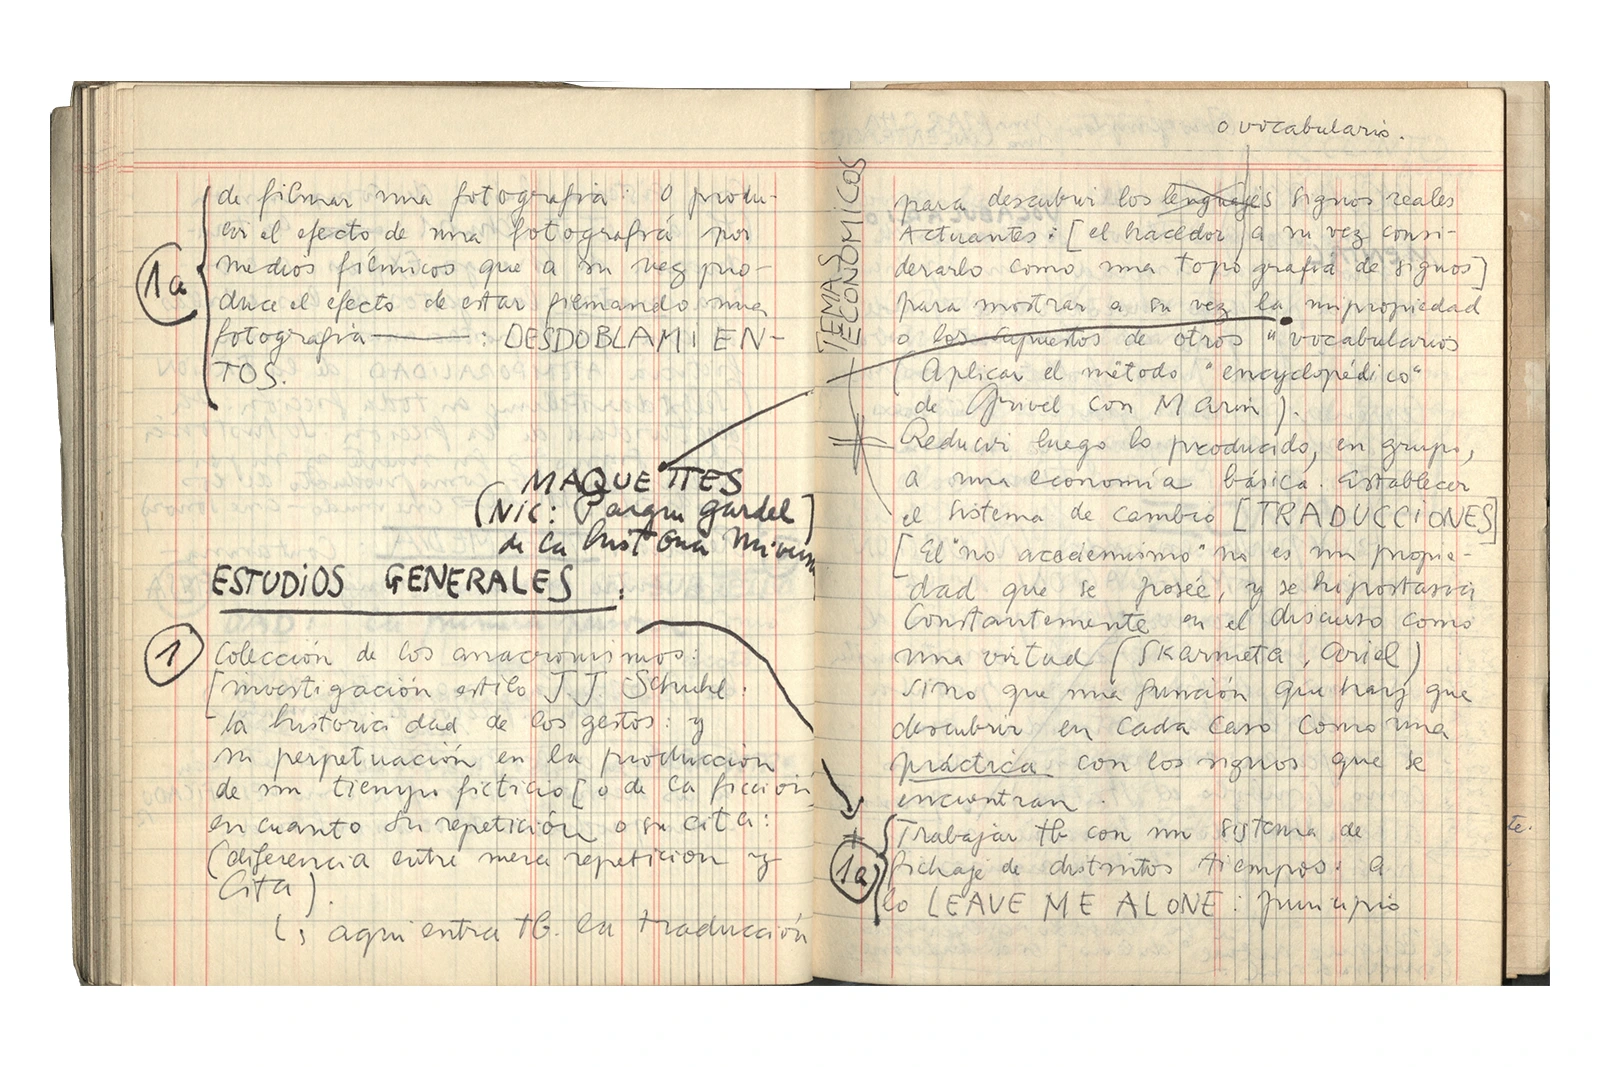 de filmar una fotografía: o produ-
cir el efecto de una fotografía por
medios fílmicos que a su vez pro-
duce el efecto de estar filmando una
fotografía —— : DESDOBLAMIEN-
TOS.
1a
MAQUETTES
(Nic: Parque Gardel]
de la historia
ESTUDIOS GENERALES :
1
Colección de los anacronismos:
[investigación estilo J.J. Schuhl:
la historicidad de los gestos: y
su perpetuación en la producción
de un tiempo ficticio [o de la ficción
en cuanto su repetición o su cita:
(diferencia entre mera repetición y
cita).
aquí entra tb. la traducción
o vocabulario.
TEMAS
ECONOMICOS
para descubrir los lenguajes signos reales
Actuantes: [el hacedor a su vez consi-
derarlo como una topografía de signos]
para mostrar a su vez la impropiedad
o los supuestos de otros "vocabularios
(Aplicar el método "encyclopédico"
de Grivel con Marin).
Reducir luego lo producido, en grupo,
a una economía básica. Establecer
el sistema de cambio [TRADUCCIONES]
[El "no academismo" no es una propie-
dad que se posée, y se hipostasía
Constantemente en el discurso como
una virtud (Skarmeta, Ariel)
sino que una función que hay que
descubrir en cada caso como una
práctica con los signos que se
encuentran.
1a
Trabajar tb con un sistema de
fichaje de distintos tiempos: a
lo LEAVE ME ALONE: principio
te.